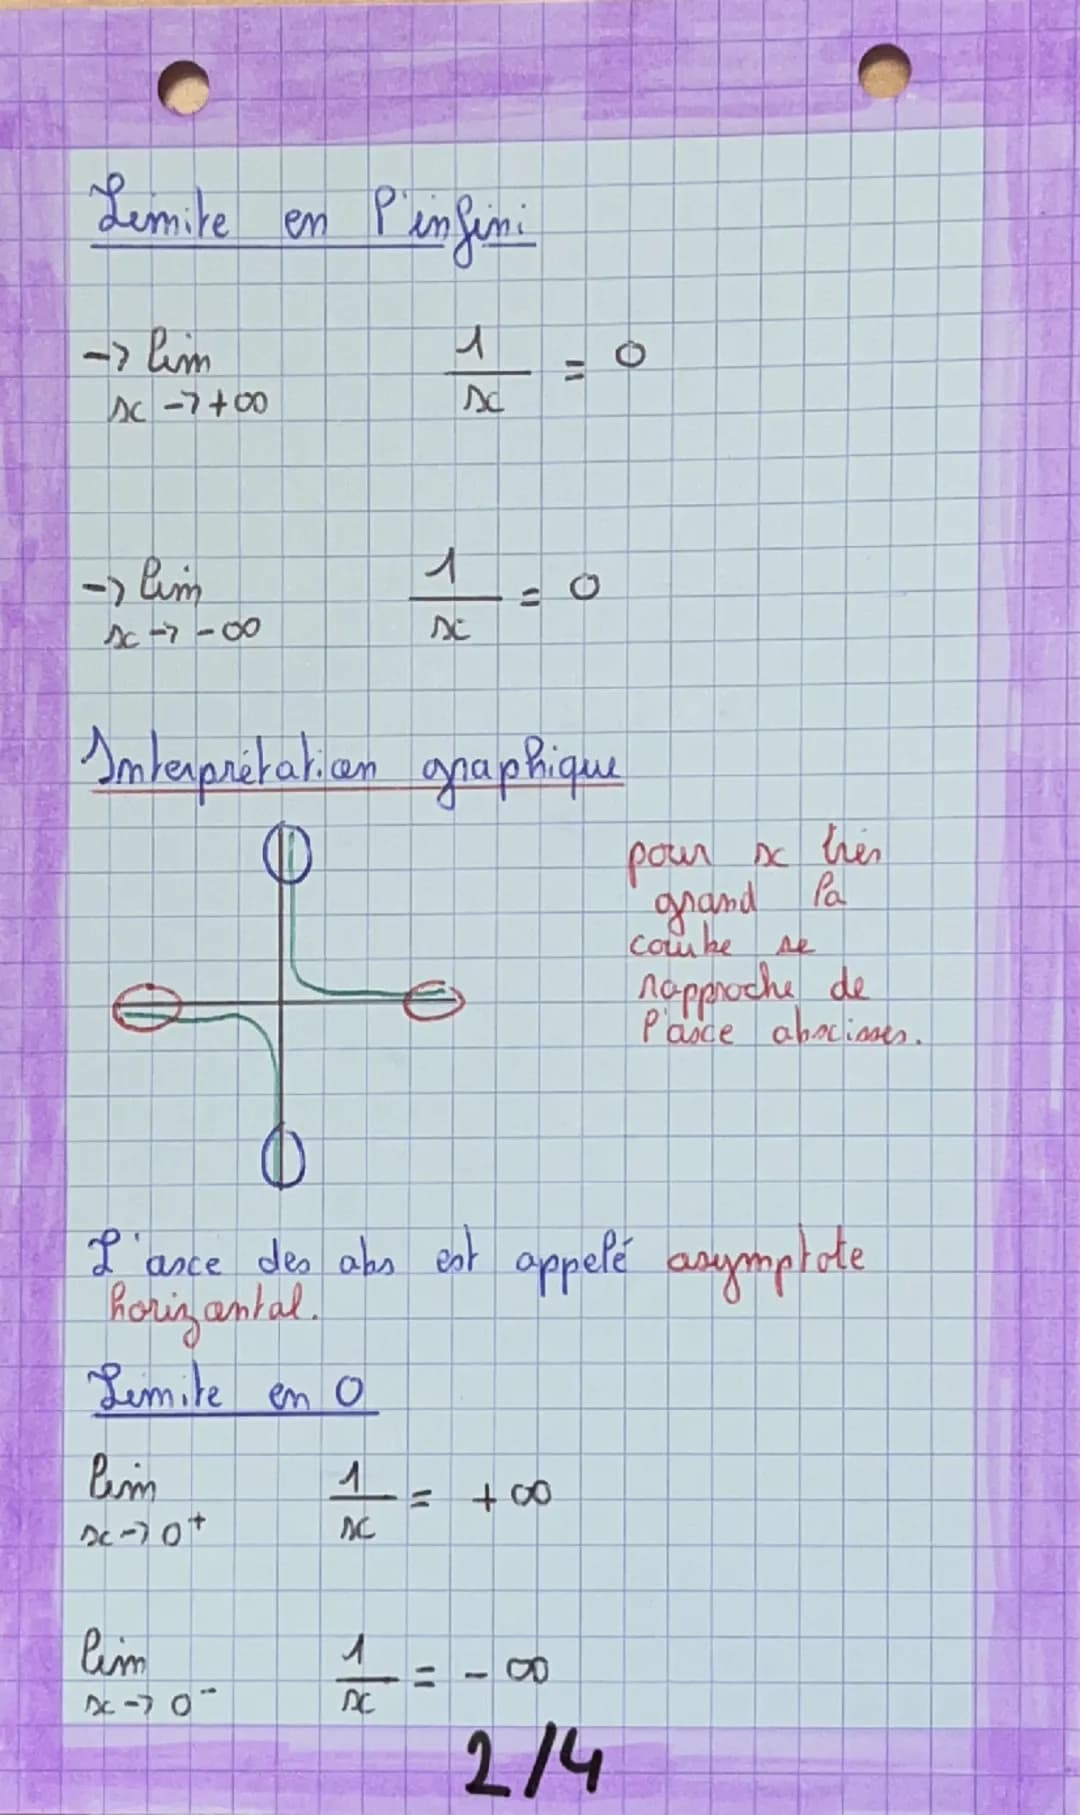 Limite en l'infini
-> lim 1/x = 0
x -> +∞
-> lim 1/x = 0
x -> -∞
Interprétation graphique
pour x très
grand la
courbe se
rapproche de
l'axe abscisses.
L'axe des abs est appelé asymptote
horizontal.
Limite en 0
lim 1/x = +∞
x -> 0+
lim 1/x = - ∞
x -> 0-
2/4